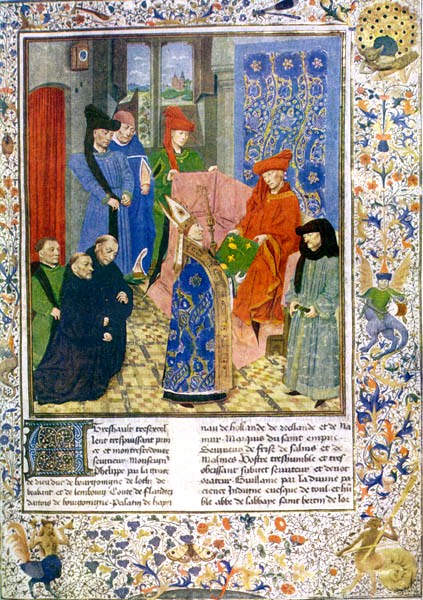 Treshault tresexcel
lent trespuissant prin
ce et montresredoubte
seigneur Monseign
Phelippe par la grace
de dieu duc de bourgoingne de loth. de
brabant et de lembourg Conte de flandres
dartois de bourgoingne Palatin de hayn
nau de hollande de zeellande et de Na
mur Marquis du saint empire
Seigneur de frise de salins et de
Malines Vostre treshumble et tres
obeissant subiect serviteur et devot
orateur Guillame par la divine pa
cience Indigne evesque de toul et hu
ble abbe de labbaye saint bertin de lor